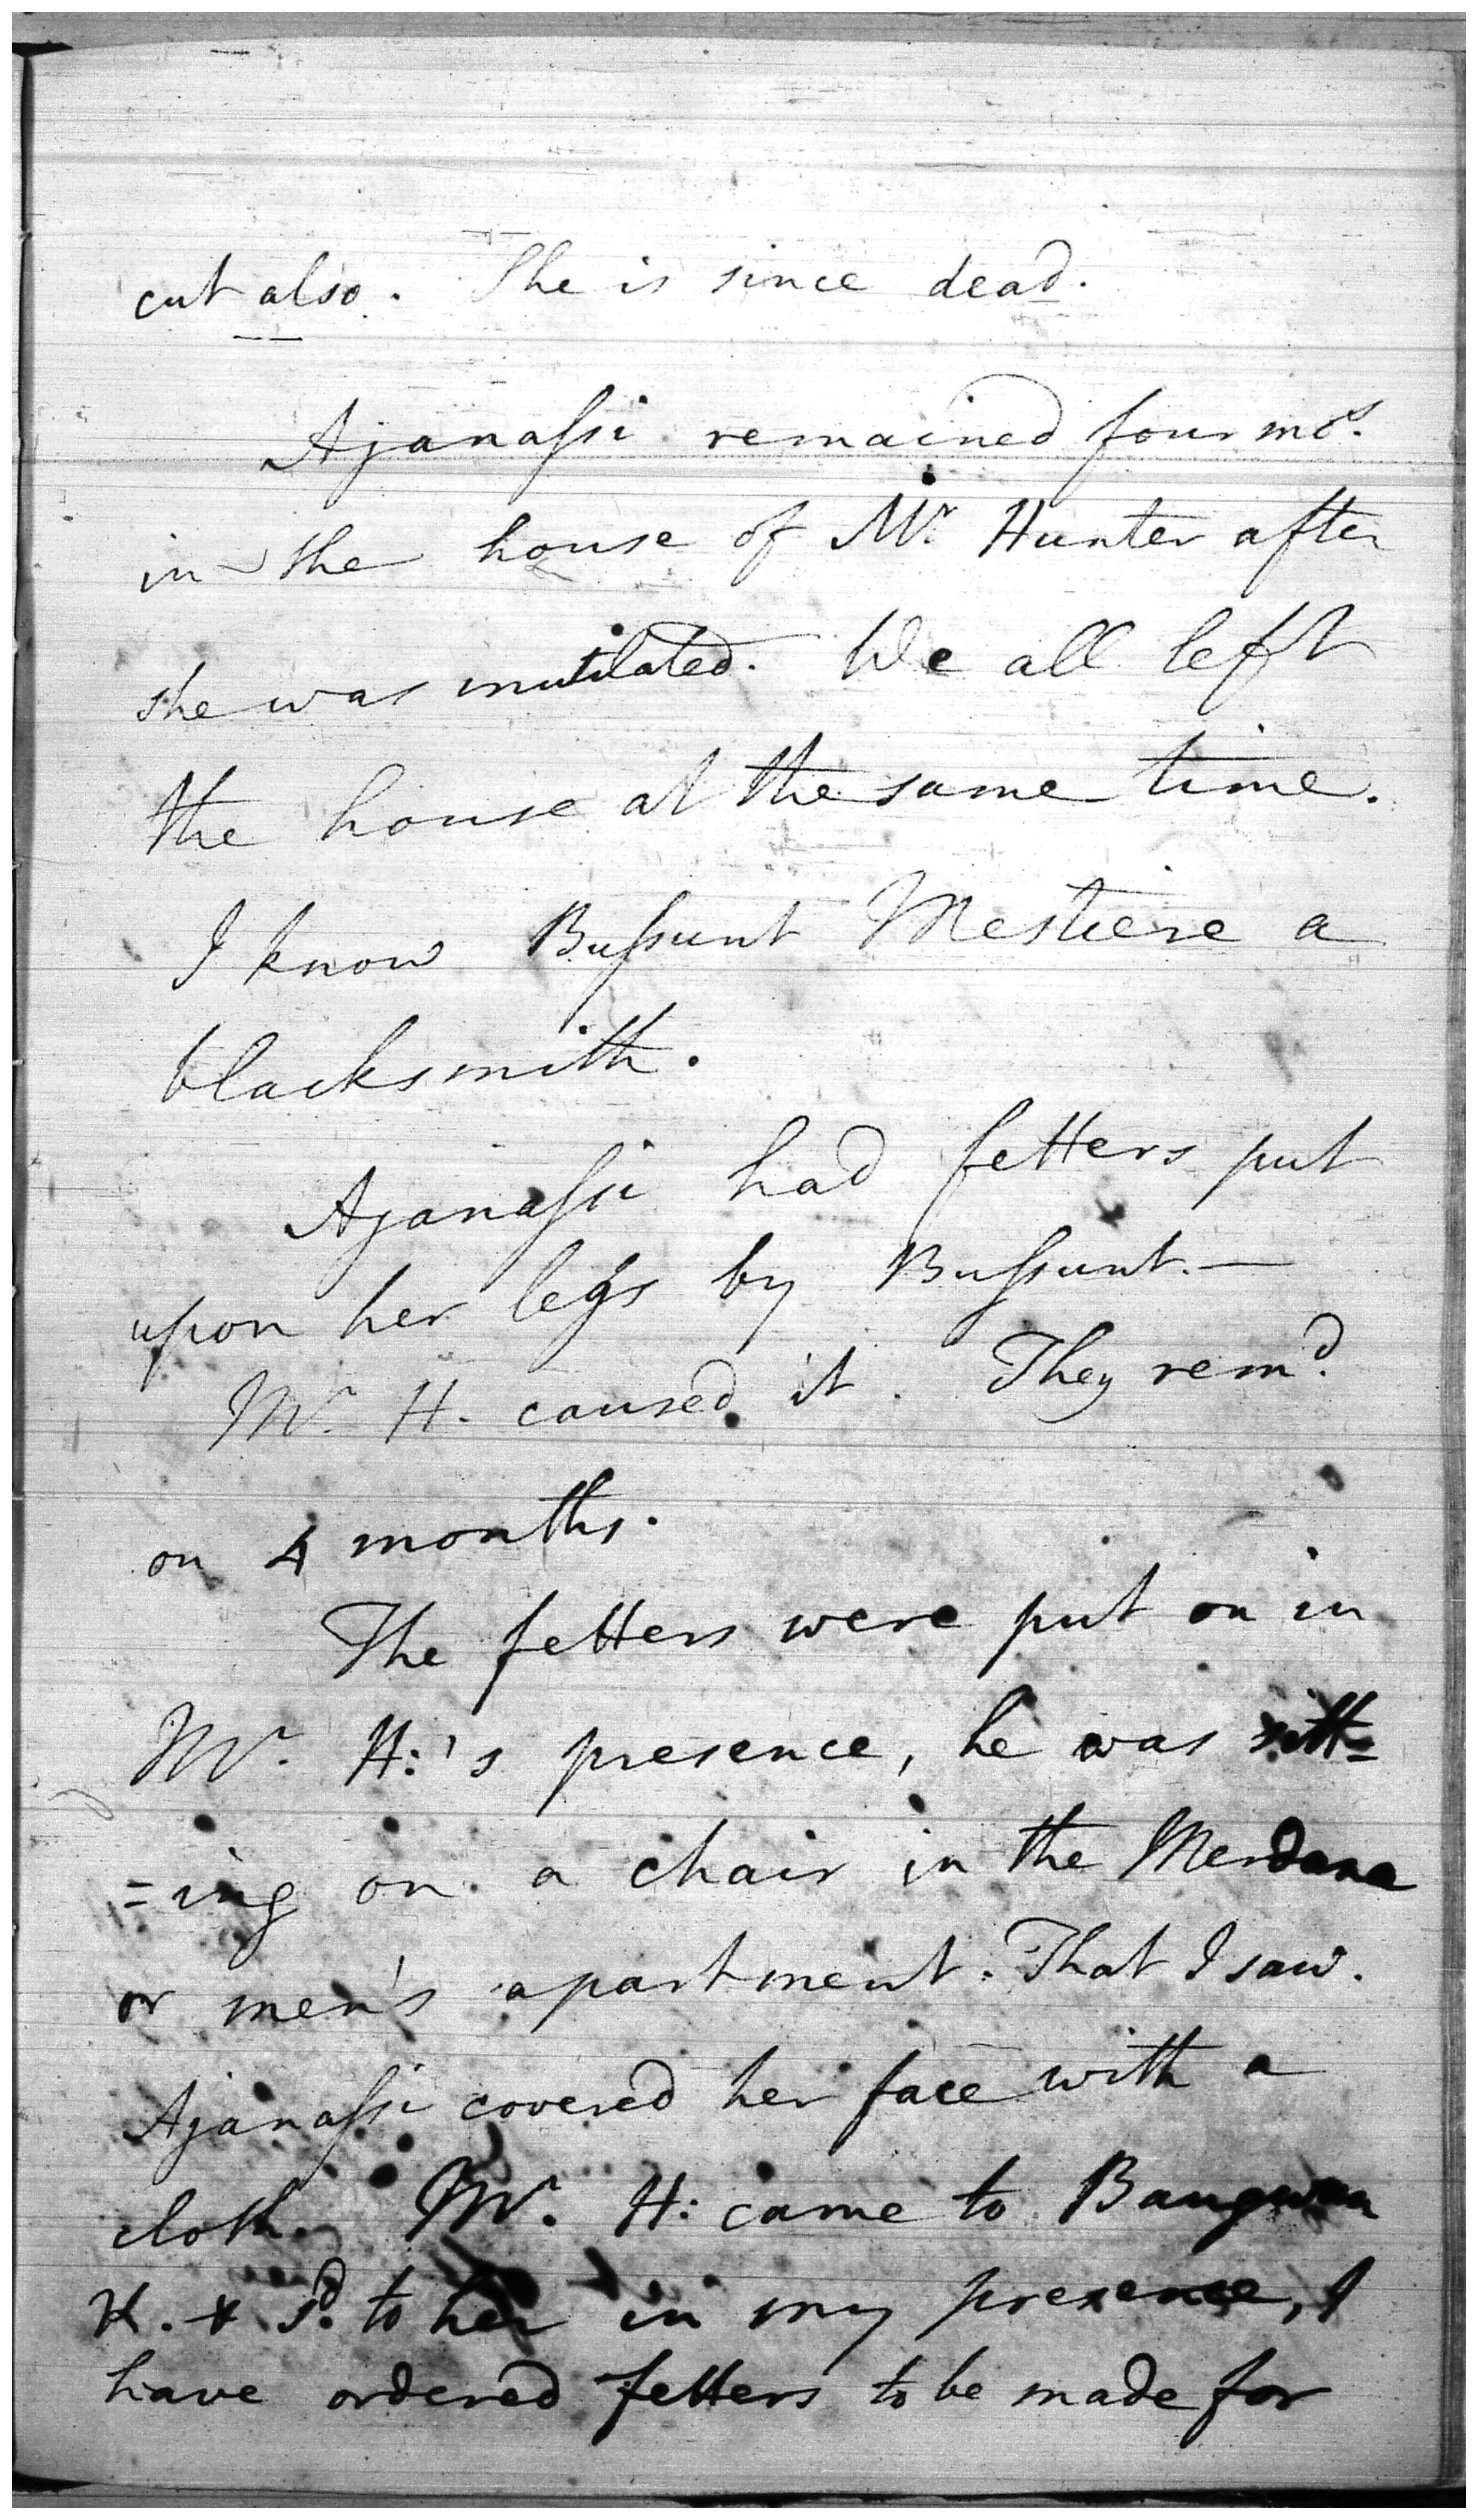 cut also. She is since dead.
Ajanaſsi remained four mos.
in the house of Mr. Hunter after
she was mutilated. We all left
the house at the same time.
I know Buſsunt Mestiere a
blacksmith.
Ajanaſsi had fetters put
upon her legs by Buſsunt.—
Mr. H. caused it. They remd.
on 4 months.
The fetters were put on in
Mr. H:'s presence, he was sitt=
=ing on a chair in the Merdana
or men's apartment. That I saw.
Ajanaſsi covered her face with a
cloth. Mr. H: came to Baugwan
K. & sd. to her in my presence, I
have ordered fetters to be made for